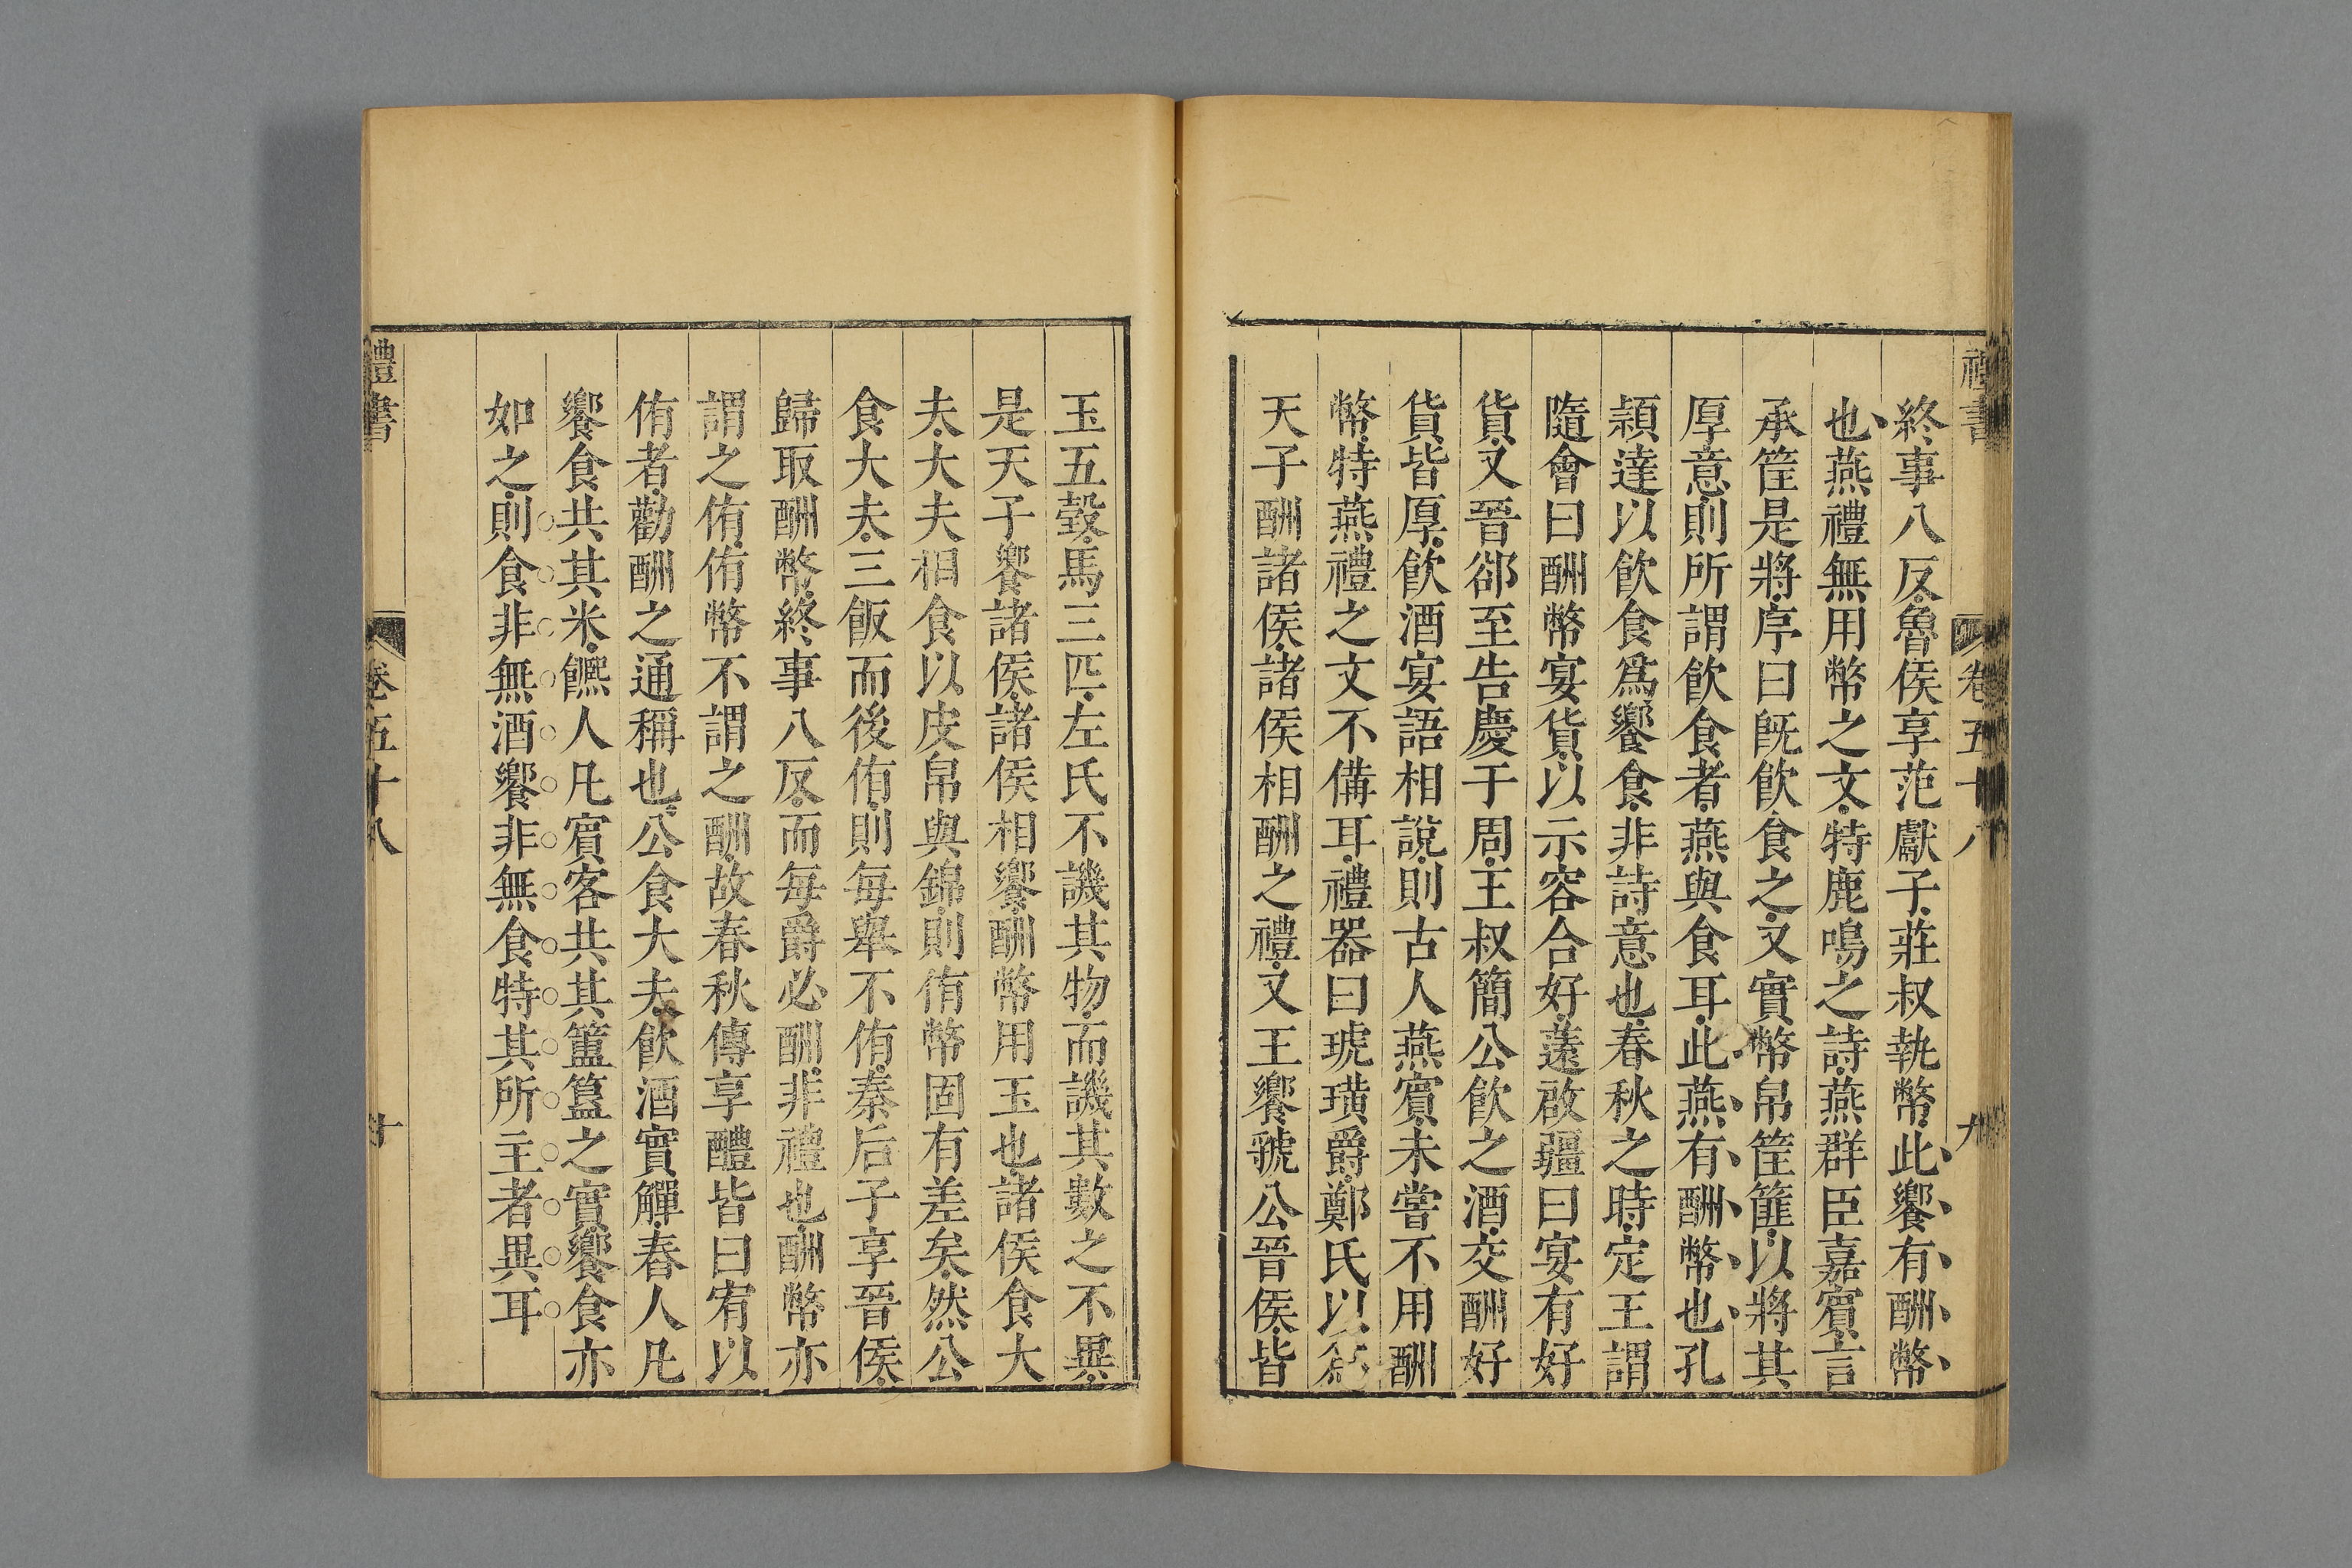 禮書 卷五十八 九
終事八反魯侯享范獻子莊叔執幣此饗有酬幣
也燕禮無用幣之文特鹿鳴之詩燕群臣嘉賓言
承筐是將序曰既飲食之又實幣帛筐篚以將其
厚意則所謂飲食者燕與食耳此燕有酬幣也孔
穎達以飲食爲饗食非詩意也春秋之時定王謂
隨會曰酬幣宴貨以示容合好薳啟疆曰宴有好
貨又晉郤至告慶于周王叔簡公飲之酒交酬好
貨皆厚飲酒宴語相說則古人燕賓未嘗不用酬
幣特燕禮之文不備耳禮器曰琥璜爵鄭氏以爲
天子酬諸侯諸侯相酬之禮又王饗虢公晉侯皆
玉五瑴馬三匹左氏不譏其物而譏其數之不異
是天子饗諸侯諸侯相饗酬幣用玉也諸侯食大
夫大夫相食以皮帛與錦則侑幣固有差矣然公
食大夫三飯而後侑則每舉不侑秦后子享晉侯
歸取酬幣終事八反而每爵必酬非禮也酬幣亦
謂之侑侑幣不謂之酬故春秋傳享醴皆曰宥以
侑者勸酬之通稱也公食大夫飲酒實觶舂人凡
饗食共其米饎人凡賓客共其簠簋之實饗食亦
如之則食非無酒饗非無食特其所主者異耳
禮書 卷五十八 十